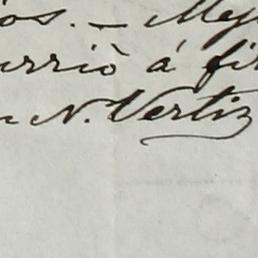 os. — Mej
urriò á fir
n N. Vertiz